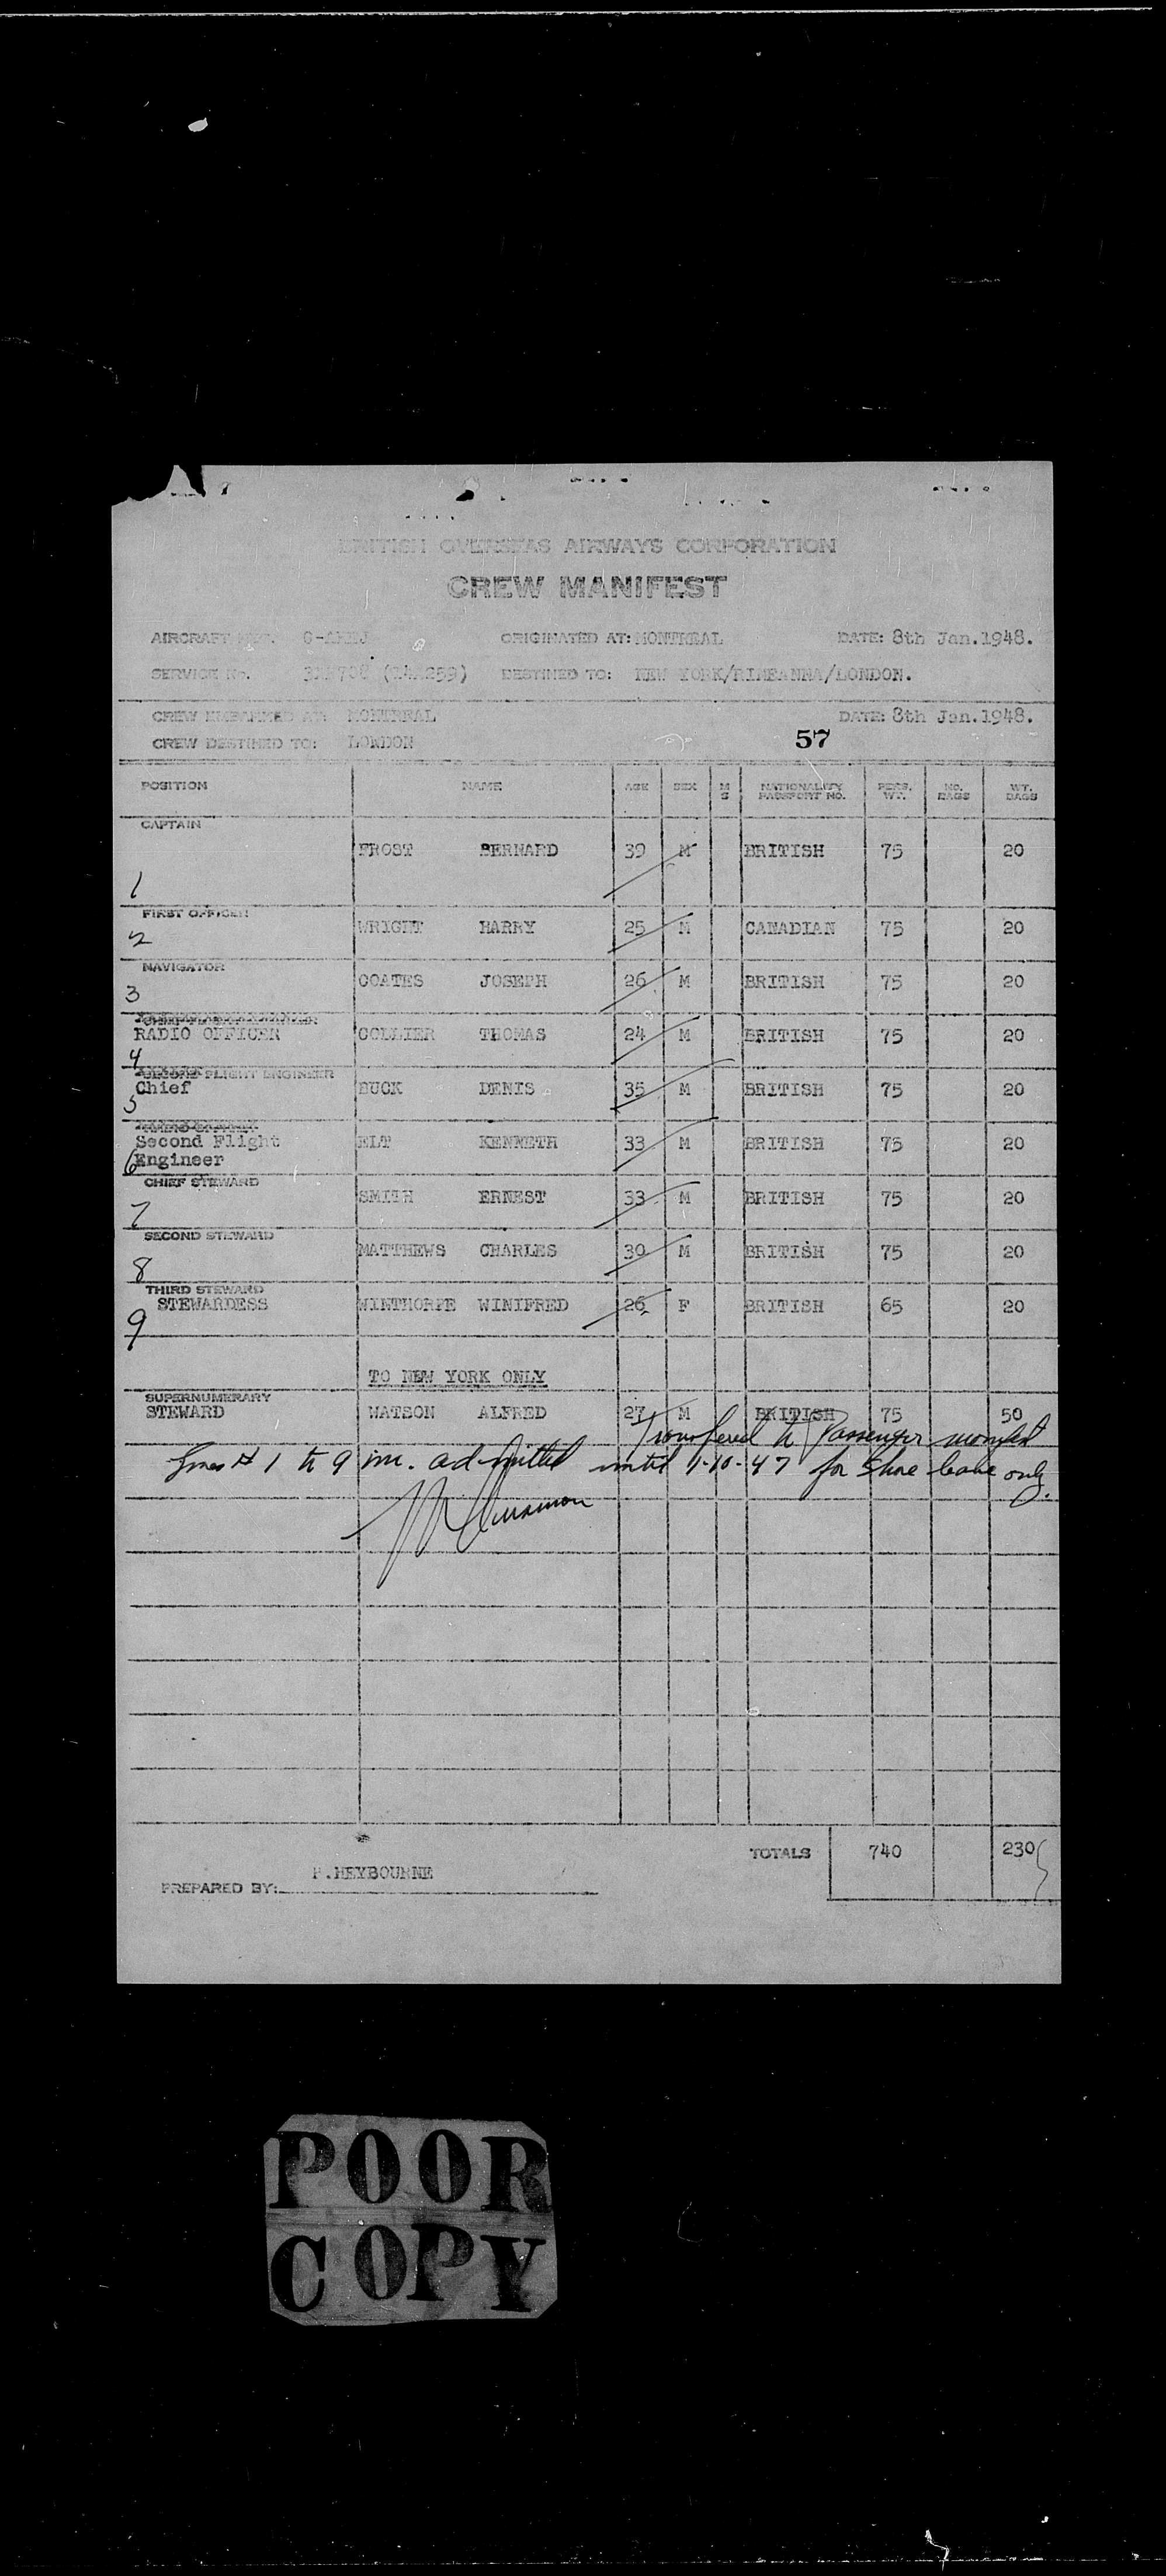 BRITISH OVERSEAS AIRWAYS CORPORATION
CREW MANIFEST
AIRCRAFT ORIGINATED AT: MONTREAL DATE: 8th Jan.1948.
SERVICE No. DESTINED TO: NEW YORK/RINEANNA/LONDON.
CREW EMBARKED AT: MONTREAL DATE: 8th Jan.1948.
CREW DESTINED TO: LONDON 57
POSITION NAME AGE SEX M S NATIONALITY PASSPORT NO. PERS. WT. NO. BAGS WT. BAGS
CAPTAIN
FROST BERNARD 39 M BRITISH 75 20
1
FIRST OFFICER
WRIGHT HARRY 25 M CANADIAN 75 20
2
NAVIGATOR
COATES JOSEPH 26 M BRITISH 75 20
3
RADIO OFFICER COLLIER THOMAS 24 M BRITISH 75 20
4
FLIGHT ENGINEER
Chief BUCK DENIS 35 M BRITISH 75 20
5
Second Flight ELT KENNETH 33 M BRITISH 75 20
6 Engineer
CHIEF STEWARD
SMITH ERNEST 33 M BRITISH 75 20
7
SECOND STEWARD
MATTHEWS CHARLES 30 M BRITISH 75 20
8
THIRD STEWARD
STEWARDESS WINTHORPE WINIFRED 26 F BRITISH 65 20
9
TO NEW YORK ONLY
SUPERNUMERARY
STEWARD WATSON ALFRED 27 M BRITISH 75 50
Transfered to Passenger manifest
Lines # 1 to 9 inc. admitted until 1-10-47 for Shore leave only.
TOTALS 740 230
P.HEYBOURNE
PREPARED BY:
POOR
COPY